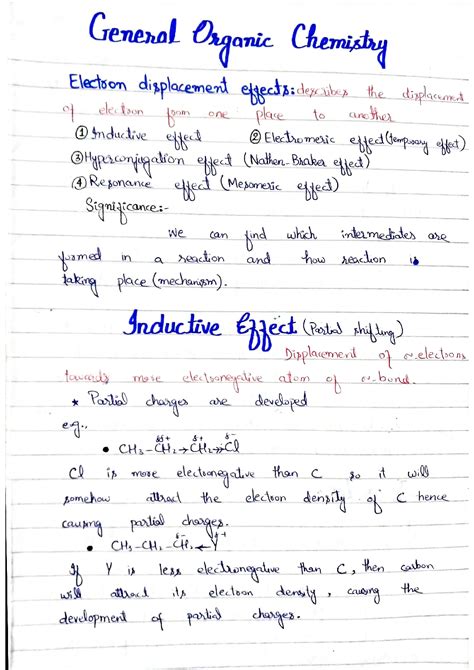 General Organic Chemistry
Electron displacement effects: describes the displacement
of electron from one place to another
① Inductive effect ② Electromeric effect (temporary effect)
③ Hyperconjugation effect (Nathen-Braker effect)
④ Resonance effect (Mesomeric effect)
Significance:-
We can find which intermediates are
formed in a reaction and how reaction is
taking place (mechanism).
Inductive Effect (Partial shifting)
Displacement of σ-electrons
towards more electronegative atom of σ-bond.
* Partial charges are developed
eg.,
• CH₃-CH₂→CH₂→Cl
Cl is more electronegative than C so it will
somehow attract the electron density of C hence
causing partial charges.
• CH₃-CH₂-CH₂←Y
If Y is less electronegative than C, then carbon
will attract its electron density, causing the
development of partial charges.